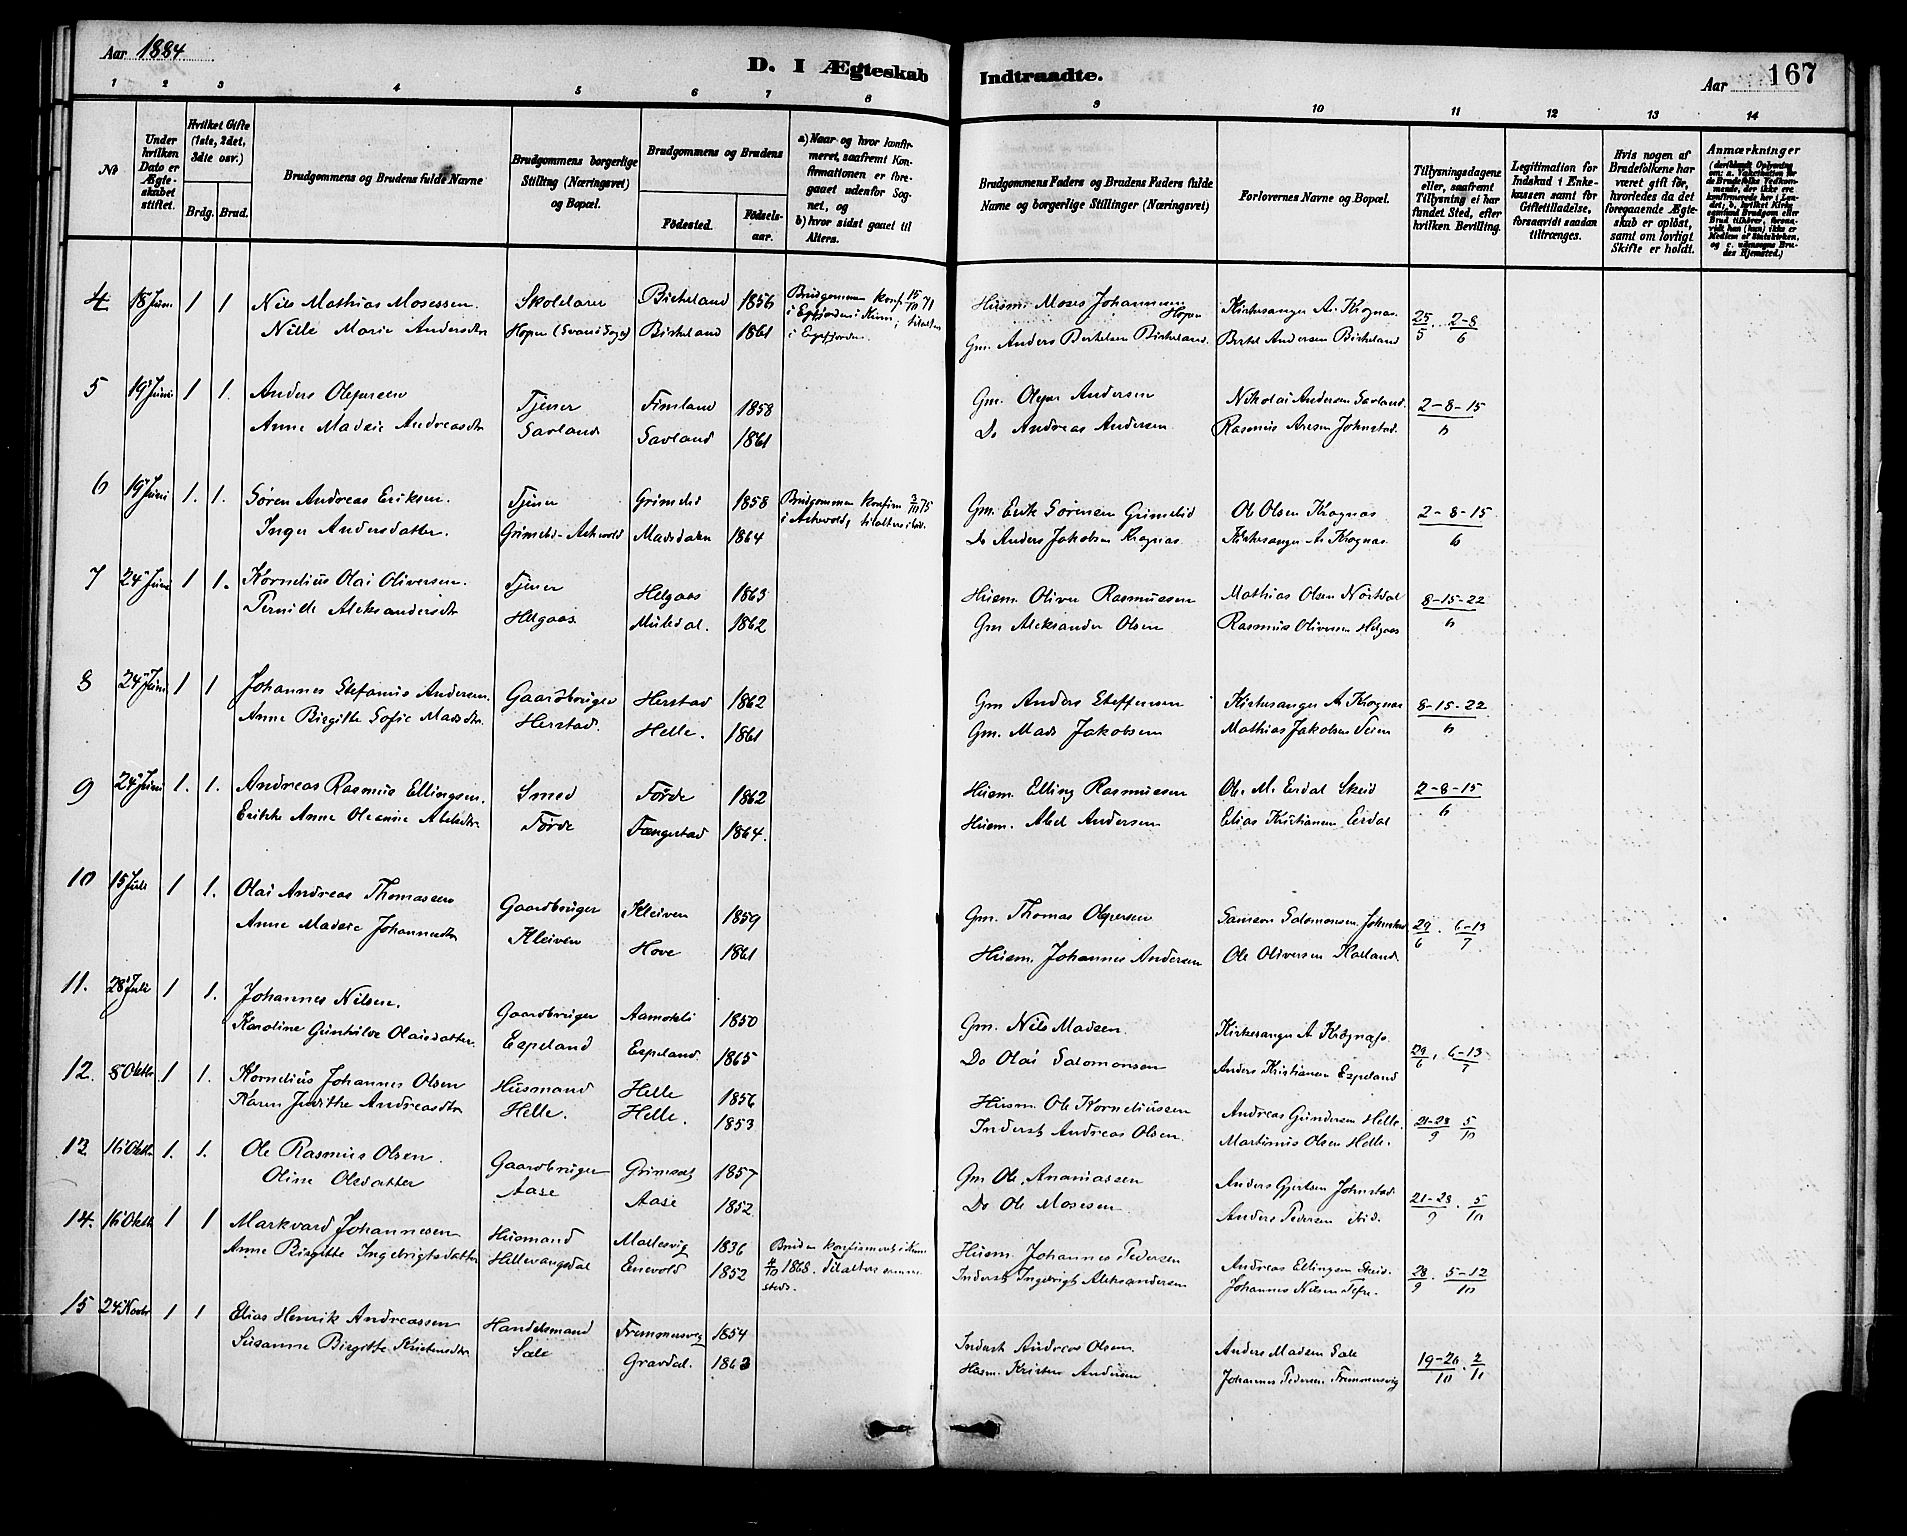 Aar 1884
D. I Ægteskab Indtraadte.
Aar 167
1 2 3 4 5 6 7 8 9 10 11 12 13 14
No
Under hvilken Dato er Ægteskabet stiftet.
Hvilket Gifte (1ste, 2det, 3die osv.)
Brdg. Brud.
Brudgommens og Brudens fulde Navne
Brudgommens borgerlige Stilling (Næringsvei) og Bopæl.
Brudgommens og Brudens
Födested. Födselsaar.
a) Naar og hvor konfirmeret, saafremt Konfirmationen er foregaaet udenfor Sognet, og b) hvor sidst gaaet til Alters.
Brudgommens Faders og Brudens Faders fulde Navne og borgerlige Stillinger (Næringsvei)
Forlovernes Navne og Bopæl.
Tillysningsdagene eller, saafremt Tillysning ei har fundet Sted, efter hvilken Bevilling.
Legitimation for Indskud i Enkekassen samt for Giftetilladelse, forsaavidt saadan tiltrænges.
Hvis nogen af Brudefolkene har været gift för, hvorledes da det foregaaende Ægteskab er oplöst, samt om lovligt Skifte er holdt.
Anmærkninger
4 18 Juni 1 1 Nils Mathias Mosessen. Skolelærer Birkeland 1856 Brudgommen konf. 15/10 71 Husm. Moses Johannesen Hopen Kirkesanger A. Krognæs 25/5 . 2-8/6
Nille Marie Andersdtr Hopen Birkeland 1861 i Eegefjorden. Gm. Anders Bertelsen Birkeland. Bertel Andersen Birkeland
5 19 Juni 1 1. Anders Olejarsen Tjener Fimland 1858 Gm. Andersen Nikolai Andersen Savland. 2-8-15/6
Anne Madsie Andreasdtr Savland Savland 1861 Do Andreas Andersen Rasmus Johnstad.
6 19 Juni 1. 1. Søren Andreas Eriksen. Tjener Grimelid 1858 Brudgommen konfirm 3/10 75 Gm. Erik Sørensen Grimelid Ole Olsen Krognæs 2-8-15/6
Inger Andersdatter. Grimelid-Askvold Madsdalen 1864 i Askvold, Do Anders Jakobsen Krognæs Kirkesanger A. Krognæs.
7 24 Juni 1 1. Kornelius Olai Oliversen. Tjener Helgaas 1863 Husm. Oliver Rasmussen Mathias Olsen 8-15-22/6
Pernide Aleksandersdtr Helgaas Muledal. 1862 Gm Aleksander Olsen Rasmus Oliversen Helgaas
8 24 Juni 1 1 Johannes Stefanus Andersen. Gaardbruger Herstad 1862 Gm Anders Steffensen Kirkesanger A Krognæs 8-15-22/6
Anne Birgitte Sofie Madsdtr. Herstad. Helle. 1861 Gm. Mads Jakobsen Mathias Jakobsen Teien
9 24 Juni 1. 1. Andreas Rasmus Ellingsen. Smed Førde 1862 Husm. Elling Rasmussen Ole M. Erdal Skeid 2-8-15/6
Erikke Anne Oleanne Abelsdtr. Førde Fængestad 1864. Husm. Abel Andersen Elias Kristiansen Erdal
10 15 Juli 1 1. Olai Andreas Thomassen Gaardbruger Kleiven 1859 Gm. Thomas Olejersen Samson Salomonsen Johnstad 29/6 . 6-13/7
Anne Madsie Johannesdtr Kleiven Hove 1861 Husm. Johannes Andersen Ole Oliversen
11. 28 Juli 1 1. Johannes Nilsen. Gaardbruger Aamotli 1850 Gm. Nils Madsen. Kirkesanger A Krognæs. 29/6 . 6-13/7
Karoline Gunhilde Olaisdatter. Espeland Espeland. 1865 Do Olai Salomonsen Anders Kristiansen Espeland
12. 8 Oktbr 1 1. Kornelius Johannes Olsen Husmand Helle 1856 Husm. Ole Korneliussen Andreas Gundersen Helle. 21-28/9 5/10
Karen Judithe Andreasdtr Helle. Helle. 1853 Inderst Andreas Olsen. Martinus Olsen Helle.
13 16 Oktbr 1. 1. Ole Rasmus Olsen. Gaardbruger Grimset 1857 Gm Ole Ananiassen Anders Gjertsen Johnstad. 21-28/9 . 5/10
Oline Olesdatter Aase Aase 1852. Do Ole Mosesen Anders Pedersen ibid.
14. 16 Oktbr 1 1 Markvard Johannesen Husmand Mallesvig 1836 Bruden konfirmeret i Kinn Husm. Johannes Pedersen Andreas Ellingsen Skeid. 28/9 . 5-12/10
Anne Birgitte Ingebrigtsdatter Hellevangsdal Enevold 1852 4/10 1868. tilalters samme steds. Inderst Ingebrigt Aleksandersen Johannes Nilsen Tefre.
15 24 Novbr 1 1 Elias Henrik Andreassen Handelsmand Fremmersvig 1854 Inderst Andreas Olsen. Anders Madsen Sale 19-26/10 . 2/11
Susanne Birgitte Kristensdtr Sale Gravdal. 1863 Husm. Kristen Andersen Johannes Pedersen Fremmersvig